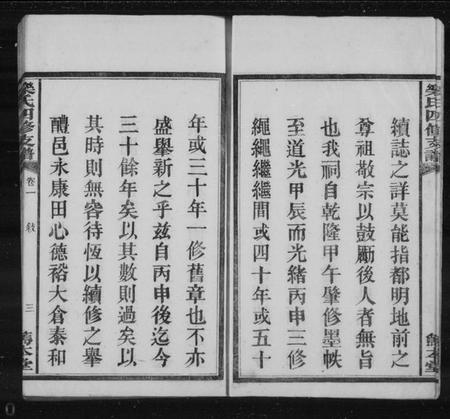 續誌之詳莫能指都明地前之
尊祖敬宗以鼓勵後人者無旨
也我祠自乾隆甲午肇修墨帙
至道光甲辰而光緒丙申三修
繩繩繼繼間或四十年或五十
年或三十年一修舊章也不亦
盛舉新之乎玆自丙申後迄今
三十餘年矣以其數則過矣以
其時則無容待恆以續修之舉
醴邑永康田心德裕大倉泰和
氏四修支譜
卷一
敘
三